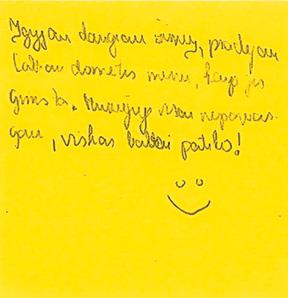 Įgyjau daugiau žinių, pradėjau
labiau domėtis menu, kaip jis
gimsta. Muziejuje nepavar-
gau, viskas labai patiko!